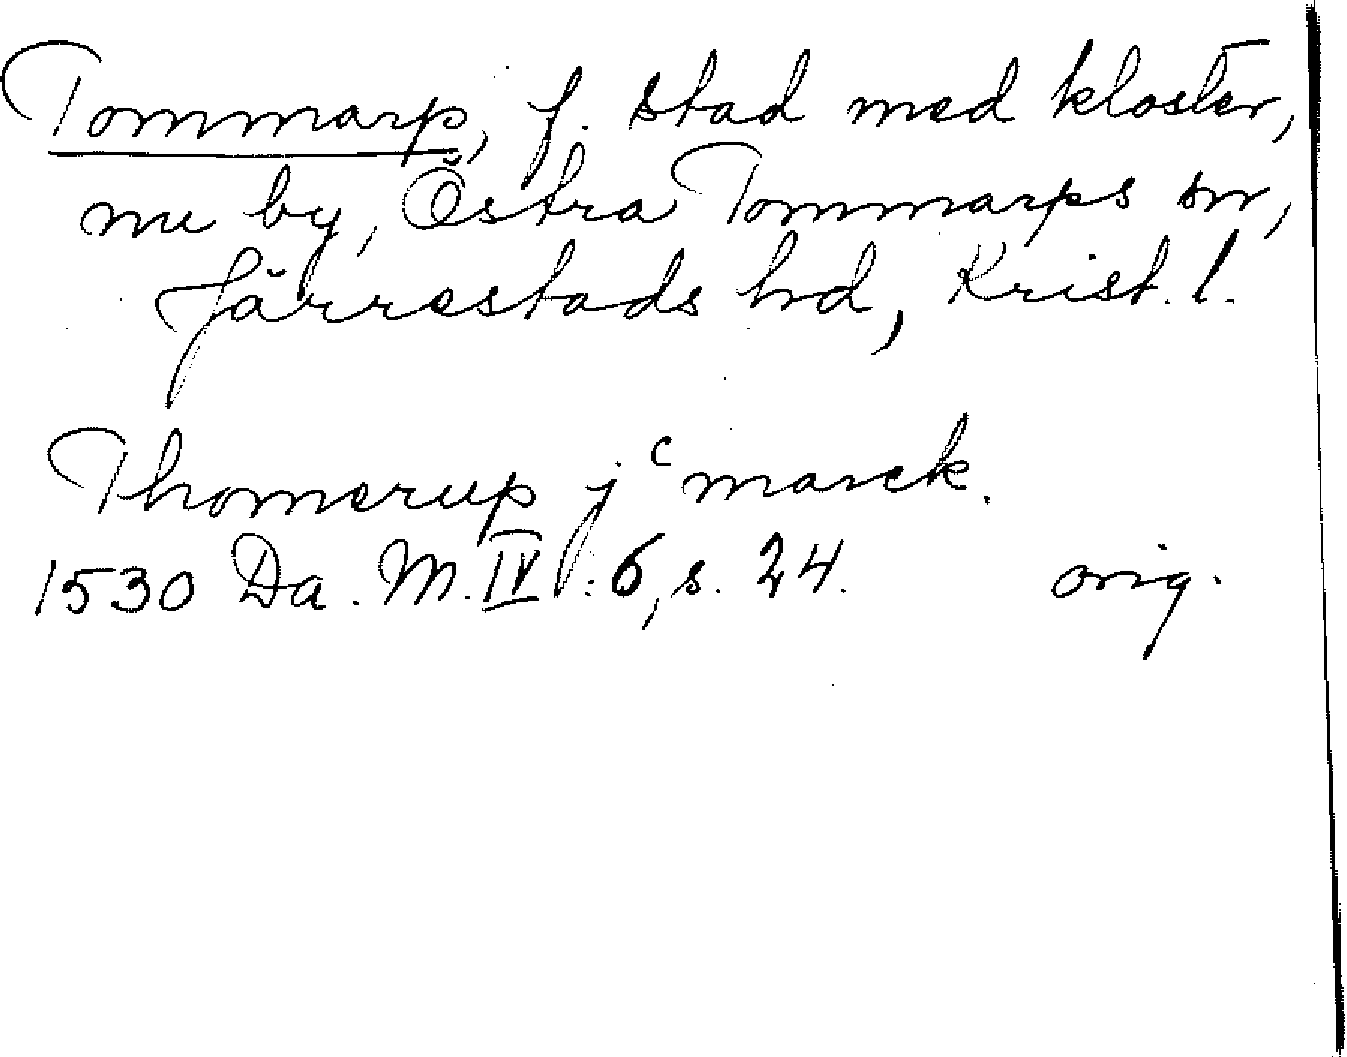 Tommarp, f. stad med kloster,
nu by, Östra Tommarps sn,
Järrestads hd, Krist. l.
Thomerup jᶜ marck.
1530 Da. M. IV : 6, s. 24. orig.